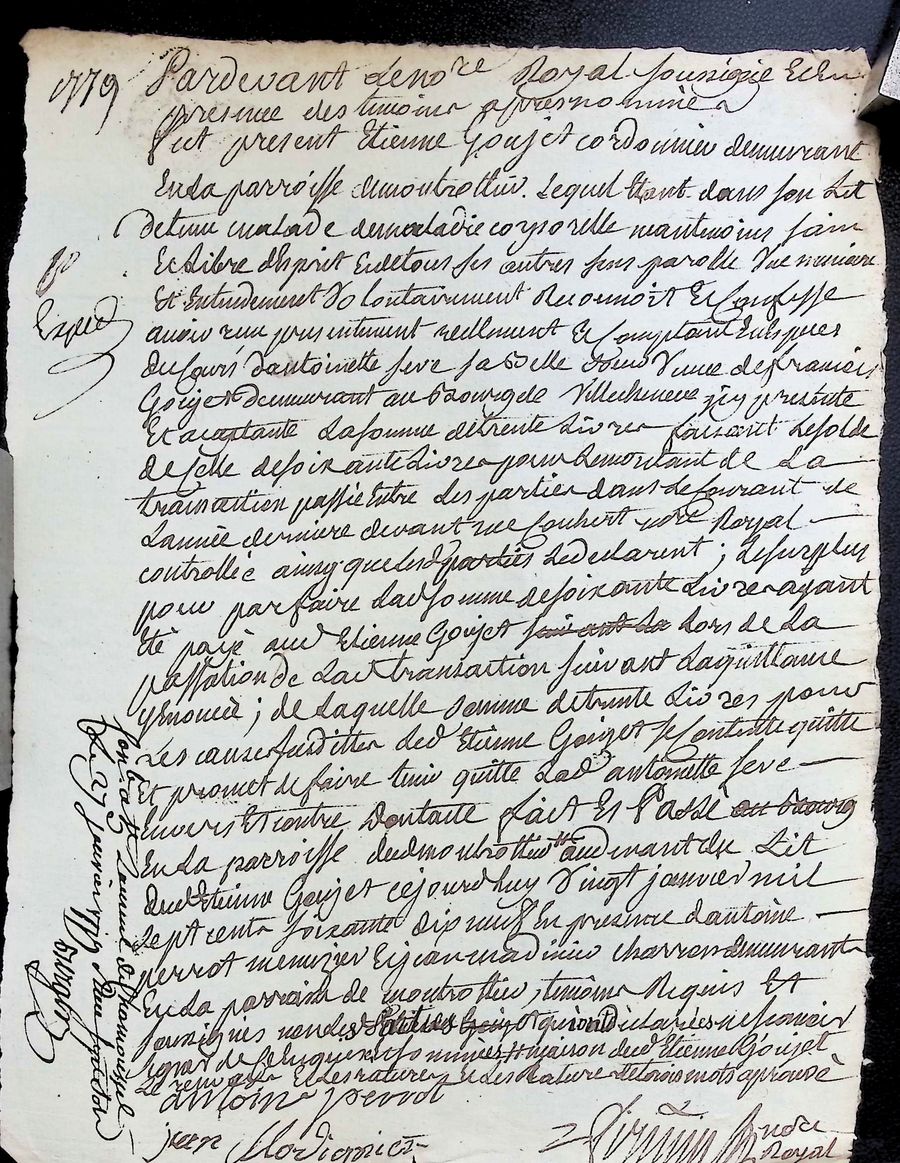 1779
Pardevant le no.re Royal soussigné Et En
presence des temoins apres nommés
fut present Etienne Goujet cordonnier demeurant
En la parroisse de montrottier. Lequel Etant dans son Lit
detenu malade de maladie corporelle neantmoins sain
Et Libre d'Esprit Et de tous ses autres sens parolle Vue memoire
Et Entendement Volontairement Reconnoit Et Confesse
avoir reçu presentement reellement Et Comptant En Espèces
du Cours d'antoinette seve sa Belle Veuve de françois
Goujet demeurant au Bourg de Villecheneve icy présente
Et acceptante La somme de trente Livres faisant Le solde
de Celle de soixante Livres pour Le montant de La
transaction passée Entre Les parties dans Le Courant de
L'année derniere devant me no.re Royal
controllée ainsy que Lesd parties Le declarent ; Le surplus
pour parfaire Lad somme de soixante Livres ayant
Eté payé aud Etienne Goujet suivant La Lors de La
passation de Lad transaction suivant La quittance
y Enoncée ; de Laquelle somme de trente Livres pour
Les causes susdittes Led Etienne Goujet se Contente quitte
Et promet de faire tenir quitte Lad antoinette seve
Envers Et contre tous fait Et Passé au Bourg
En La parroisse dud montrottier au devant du Lit
dud Etienne Goujet cejourd'huy Vingt janvier mil
sept cents soixante dix neuf En presence d'antoine
perrot menuzier Et jean charron demeurants
En La parroisse de montrottier, temoins Requis Et
soussignés non Les Parties qui ont declarées ne sçavoir
signer de Ce Enquises Et sommées maison dud Etienne Goujet
Le renvoy Et Les ratures Et Les Rature de trois mots aprouvé
antoine perrot
jean
no.re
Royal
Exped
Le 27 janvier 1779